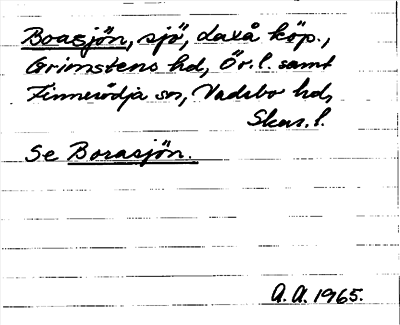 Boasjön, sjö, Laxå köp.,
Grimstens hd, Ör.l. samt
Finnerödja sn, Vadsbo hd,
Skar.l.
Se Borasjön.
A.A. 1965.